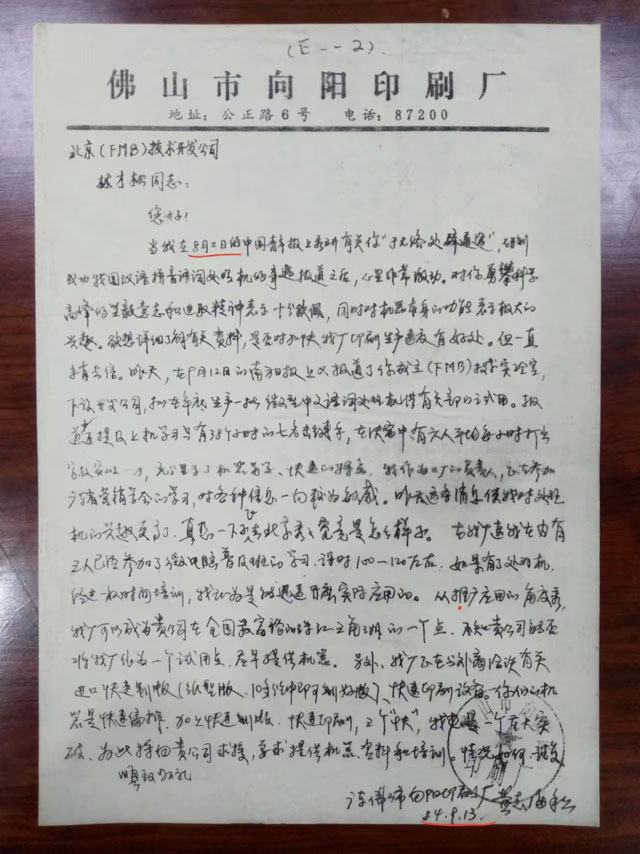 (E--2).
佛山市向阳印刷厂
地址：公正路6号 电话：87200
北京(FMB)技术开发公司
林才松同志：
您好！
当我在8月2日的中国青年报上看到有关你"于无路处辟通途"，研制
成功我国汉语拼音语词处理机的 报道之后，心里非常激动。对你勇攀科学
高峰的 毅意志和进取精神表示十分钦佩，同时对机器本身的功能表示极大的
兴趣。欲想详细了解有关资料，是否对加快我厂印刷生产速度有好处。但一直
未有去信。昨天，在9月12日的南方日报上又报道了你成立(FMB)技术实验室，
下设开发公司，拟在年底生产一批微型中文语词处理机供有关部门试用。报
道 提及上机学习只有38个小时的七名 手，在决赛中有六人平均每小时打出
字 ，充分显示了机器易学、快速的特点。我作为工厂的负责人，正在参加
学会的学习，对各种信息一向较为敏感。昨天这 消息使我对处理
机的兴趣更高了，真想一下子去北京看看究竟是怎么样子。在我厂连我在内有
三人已经参加了微电脑普及班的学习，课时100—120左右，如果有了处理机，
经过一段时间培训，我认为是能迅速开展实际应用的。从推广应用的角度看，
我厂可以成为贵公司在全国最富裕的珠江三角洲的一个点，不知贵公司能否
将我厂作为一个试用点，尽早提供机器。另外，我厂正在与外商洽谈有关
进口快速制版(纸型版、10多分钟即可制好版)、快速印刷设备。你们的机
器是快速编排，加上快速制版、快速印刷，三个"快"，我 一个在大突
破，为此特向贵公司求援，要求提供机器、资料和培训。情况如何，请复
顺致敬礼
佛山市向阳印刷厂 黄志
84.9.13.